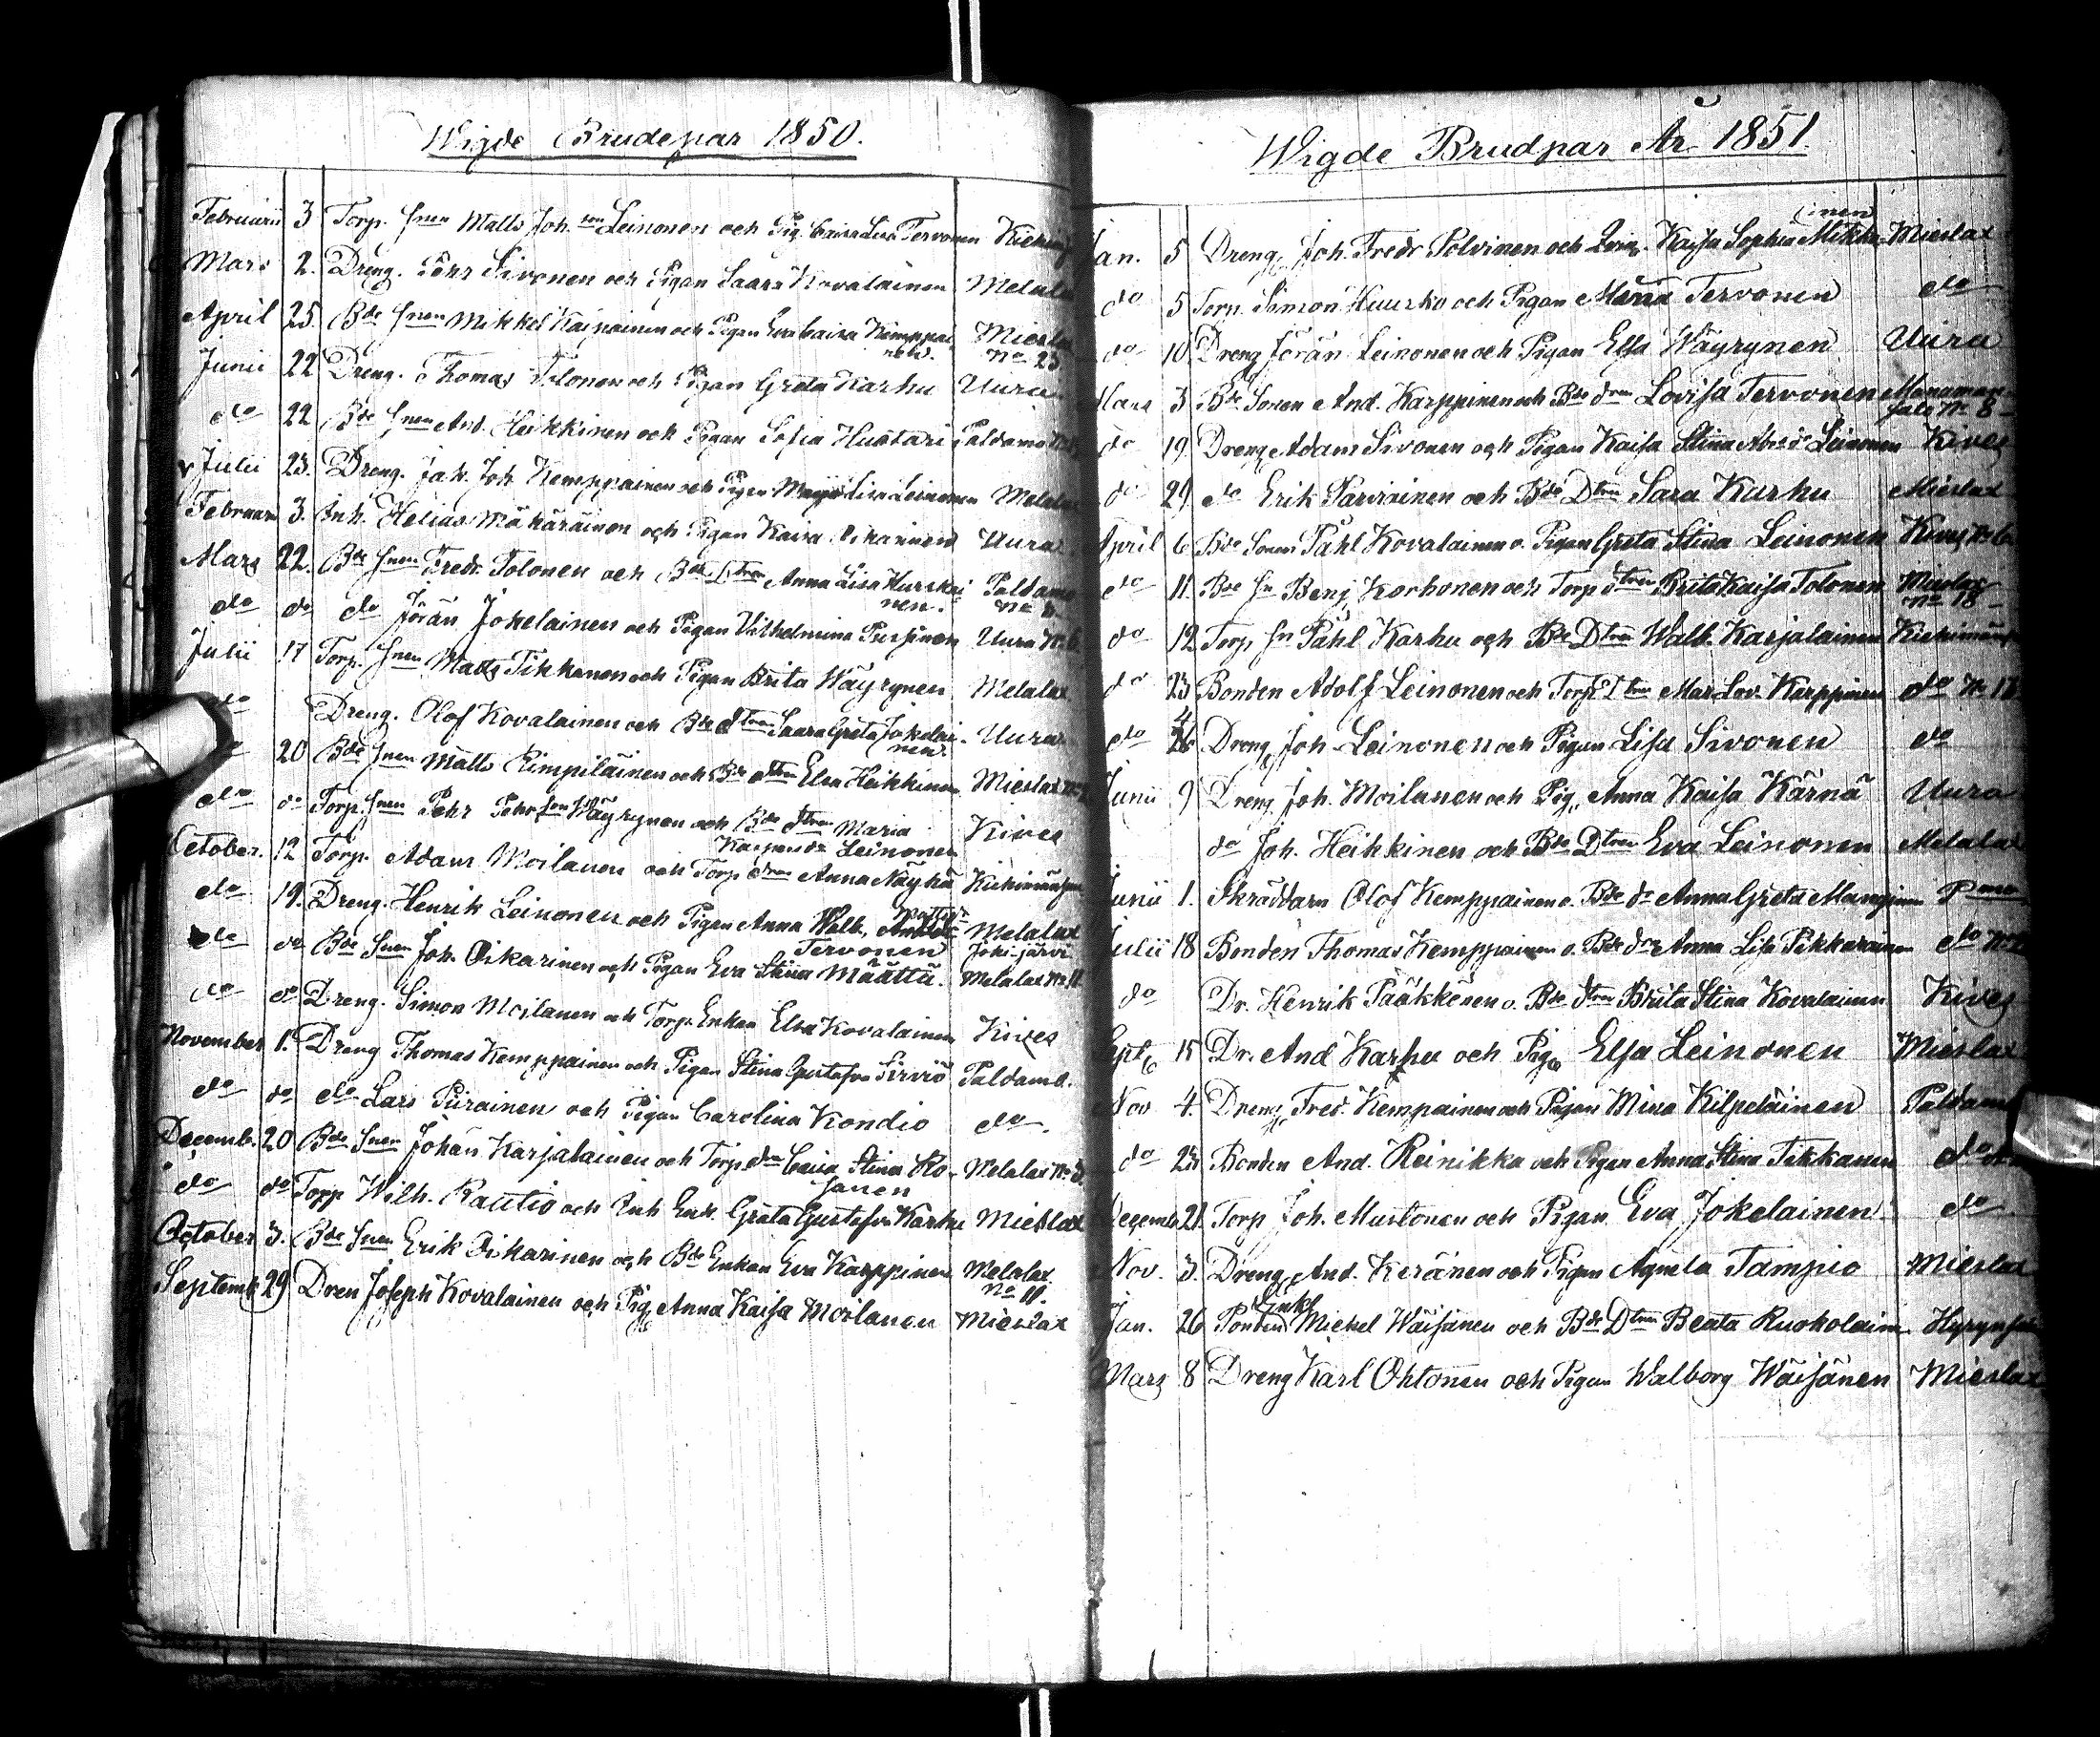 Wigde Brudepar 1850.
Februarii 3 Torp. snen Matts Joh. son Leinonen och Pig. Caisa Lisa Tervonen
Mars 2. Dreng. Pehr Sivonen och Pigan Saara Kovalainen Melala
April 25. Bde snen Mikkel Kaipainen och Pigan Eva Caisa Kemppai Miesla
nen. No 23
Junii 22 Dreng. Thomas Tolonen och Pigan Greta Karhu Uura
do 22 Bde snen And. Heikkinen och Pigan Sofia Hustari Paldamo
Julii 23. Dreng. Jak. Joh. Kemppainen och Pigan Lisa Leinonen Melala
Februari 3. Inh. Helias Mäkäräinen och Pigan Kaisa Uura
Mars 22. Bde snen Fredr. Tolonen och Bde Dtren Anna Lisa Hurskai Paldamo
nen. No
do do do Jöran Jokelainen och Pigan Vilhelmina Pursinen Uura No 6
Julii 17 Torp. snen Mats Tikkanen och Pigan Brita Wäyrynen Melalax
do Dreng. Olof Kovalainen och Bde dtren Saara Greta Jokelai- Uura
nen.
20 Bde snen Matts Rimpiläinen och Bde dtren Elsa Heikkinen Mieslax No
do do Torp. snen Pehr Pehrson Wäyrynen och Bde dtren Maria Kives
Leinonen
October. 12 Torp. Adam Moilanen och Torp dren Anna Näyhä
do 19. Dreng. Henrik Leinonen och Pigan Anna Walb. Mattsdr Melalax
Tervonen Jokijärvi
do do Bde Snen Joh. Oikarinen och Pigan Eva Stina Määttä. Melalax No 11.
do do Dreng. Simon Moilanen och Torp. Enkan Elsa Kovalainen Kives
November 1. Dreng Thomas Kemppainen och Pigan Stina Gustafsdr Sirviö Paldamo.
do do do Lars Piirainen och Pigan Carolina Kondio do
Decemb. 20 Bde Snen Johan Karjalainen och Torp. dtr Caisa Stina Ko- Melalax No 3.
sanen
do do Torp Wilh. Rautio och Inh Enk. Greta Gustafsdr Karhu Mieslax
October 3. Bde Snen Erik Oikarinen och Bde Enkan Eva Karppinen Melalax
No 11.
Septemb. 29 Dren Joseph Kovalainen och Pig. Anna Kaisa Moilanen Mieslax
Wigde Brudpar År 1851.
(inen)
Jan. 5 Dreng. Joh. Fredr Polvinen och Kaisa Sophia Mikka Mieslax
do 5 Torp. Simon Huurko och Pigan Maria Tervonen do
do 10 Dreng Jöran Leinonen och Pigan Elsa Wäyrynen Uura
Mars 3 Bde Sonen And. Karppinen och Bde dren Lovisa Tervonen Manaman
salo No 8
do 19 Dreng Adam Sivonen och Pigan Kaisa Stina Leinonen Kives
do 29 do Erik Parviainen och Bde Dtren Sara Karhu Mieslax
April 6 Bde Sonen Påhl Kovalainen o. Pigan Greta Stina Leinonen Kives No 6
do 11 Bde Sn Benj. Korhonen och Torp dtren Brita Kaisa Tolonen Mieslax
No 18
do 12 Torp sn Påhl Karhu och Bde Dtren Walb. Karjalainen
do 23 Bonden Adolf Leinonen och Torp. Dtren Mar. Lov. Karppinen do No 17
do 26 Dreng Joh Leinonen och Pigan Lisa Sivonen do
Junii 9 Dreng Joh. Moilanen och Pig. Anna Kaisa Kärnä Uura
do Joh. Heikkinen och Bde Dtren Eva Leinonen Melalax
Junii 1. Skräddarn Olof Kemppainen o. Bde dr Anna Greta Manginen
Julii 18 Bonden Thomas Kemppainen o. Bde drn Anna Lisa Pikkarainen do No
do Dr. Henrik Pääkkönen o. Bde dtren Brita Stina Kovalainen Kives
Sept. 15 Dr. And Karhu och Pig. Elsa Leinonen Mieslax
Nov 4. Dreng. Fred. Kempainen och Pigan Mina Kilpeläinen Paldam
do 23 Bonden And. Reinikka och Pigan Anna Stina Tikkanen do
Decemb 21. Torp Joh. Mustonen och Pigan Eva Jokelainen do
Nov. 3. Dreng And. Keränen och Pigan Agneta Tampio Mieslax
Enkl
Jan. 26 Bonden Michel Wäisänen och Bde Dtren Beata Ruokolain
Mars 8 Dreng Karl Ohtonen och Pigan Walborg Wäisänen Mieslax